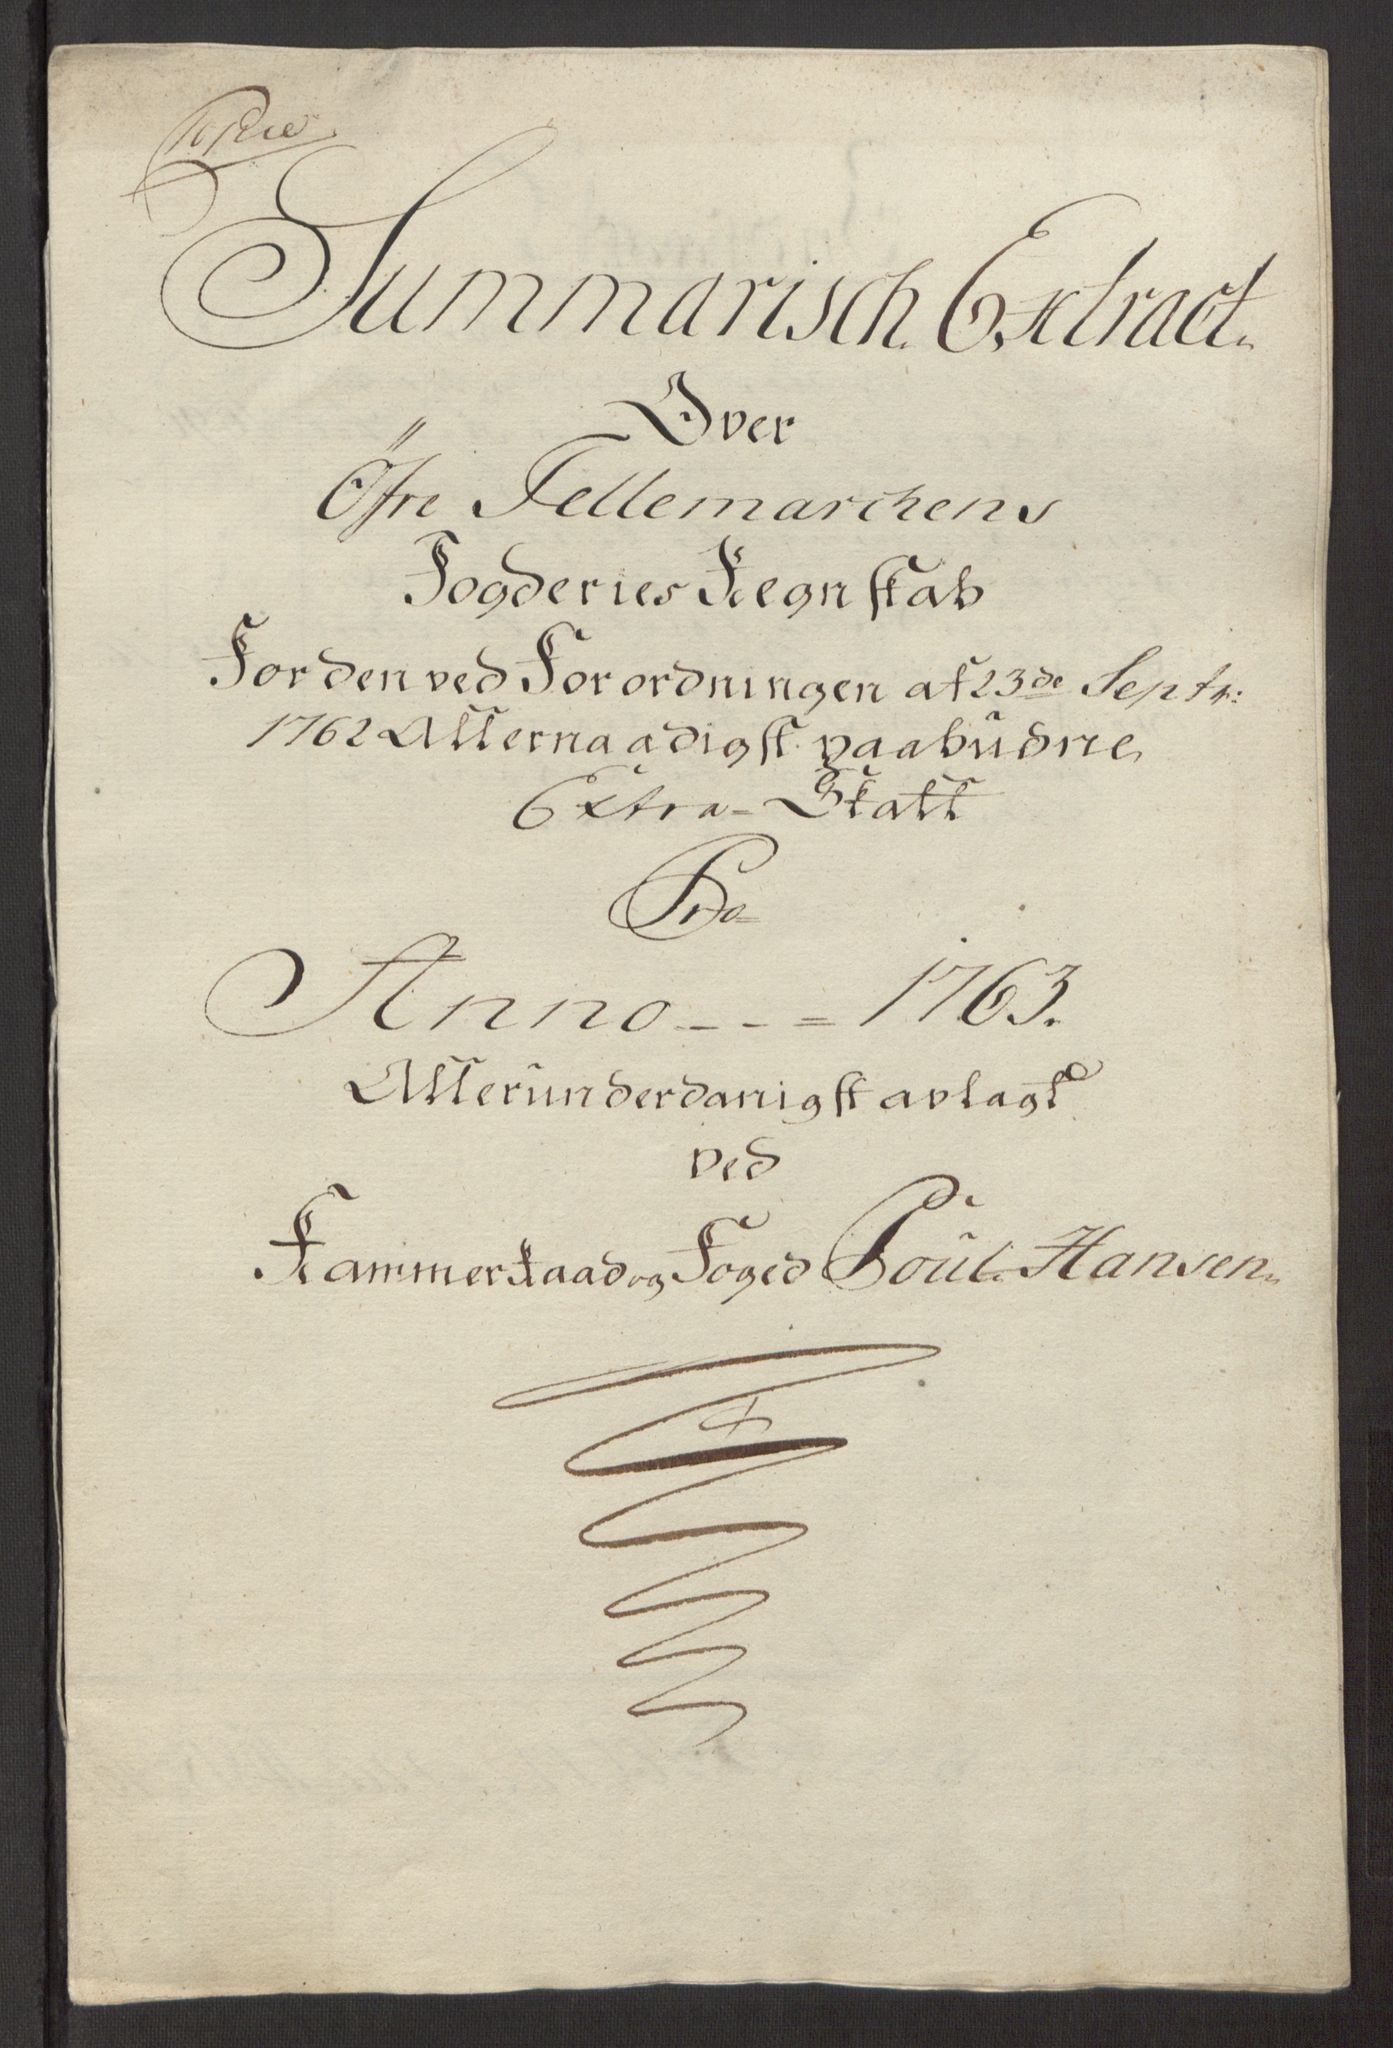 Copie
Summarisch Extract
Over
Öfre Tellemarchens
Fogderies Regnskab
For den ved Forordningen af 23de Septr:
1762 Allernaadigst paabûdne
Extra-Skatt
Pro
Anno - - = 1763.
Allerûnderdanigst avlagt
ved
Kammerraad og Foged Poûl Hansen